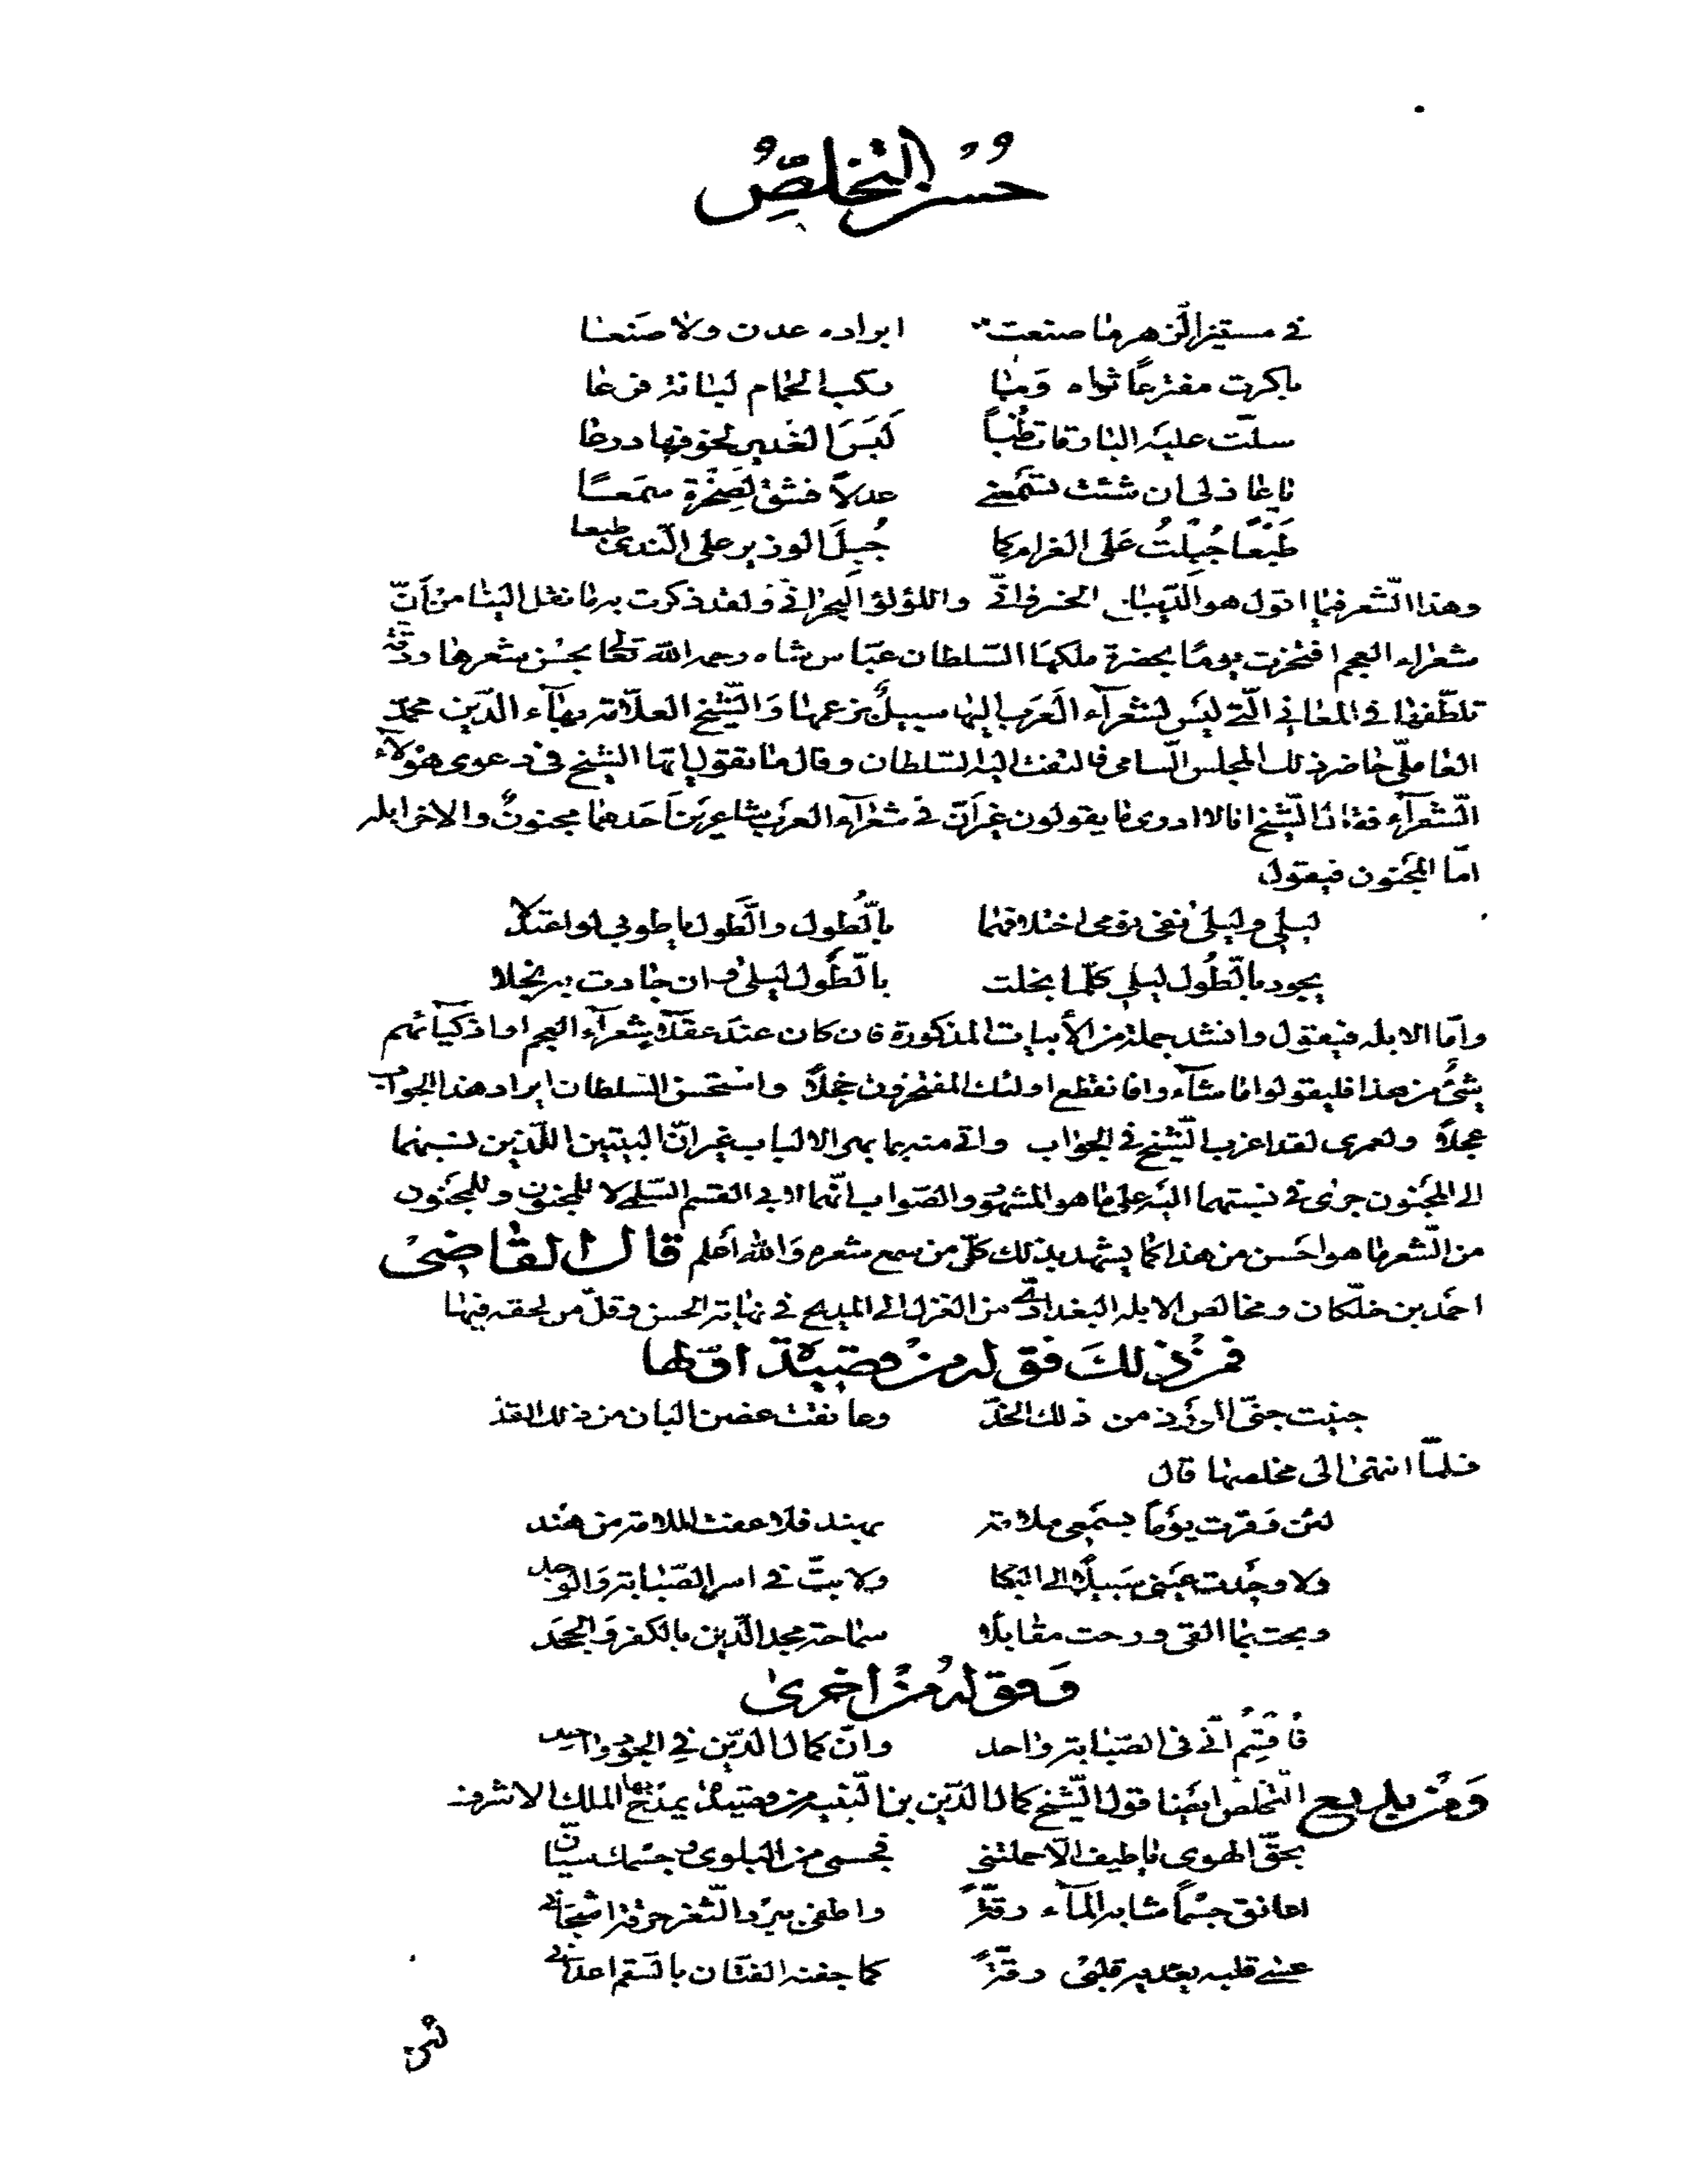 حُسْنُ التخلّصِ
في مستنير الزهر ما صنعت ابراده عدن ولا صنعا
باكرت مفترعًا ثراه وما سكب الغمام لبانة فرعا
سلّت عليه البارقات ظبًا لَبَسَ الغدير لخوفها درعا
يا عاذلى ان شئت تسمعني عدلاً فشقّ لصخرة سمعًا
طَبْعًا جُبِلْتُ عَلى الغرام كما جُبِلَ الوزير على النّدى طبعا
وهذا الشّعر فيما اقول هو الدّيباج الخسرواني واللؤلؤ البحراني ولقد ذكرت به ما نقل الينا من أنّ
شعراء العجم افتخرت يومًا بحضرة ملكها السّلطان عبّاس شاه رحمه الله تعالى بحسن شعرها ودقّة
تلطّفها في المعاني الّتي ليس لشعرآء العَرَب إليها سبيلٌ بزعمها وَالشّيخ العلّامة بهآء الدّين محمّد
العاملّى حاضر ذلك المجلس السّامى فالتفت اليه السّلطان وقال ما تقول ايّها الشيخ في دعوى هؤلآء
الشّعرآء فقال الشّيخ انا لا ادرى ما يقولون غير أنّ في شعرآء العرب شاعرين احدهما مجنونٌ والاخر ابله
امّا المجنون فيقول
ليلى وليلى نفى نومى اختلافهما بالطُّول والطَّول يا طوبى لو اعتدلا
يجود بالطُّول ليلى كلّما بخلت بالطَّول ليلى وان جادت به بخلا
وامّا الابله فيقول وانشد جملة من الأبيات المذكورة فان كان عند عقلآء شعرآء العجم او اذكيآئهم
شئٌ من هذا فليقولوا ما شآء وا فانقطع اولئك المفتخرون خجلاً واستحسن السلطان ايراد هذا الجواب
عجلاً ولعمرى لقد اغرب الشّيخ في الجواب واتى منه بما بهر الالباب غير انّ البيتين اللّذين نسبهما
الى المجنون جرى في نسبتهما اليه على ما هو المشهور والصّواب انّهما لابى القسم السّلمى لا للمجنون وللمجنون
من الشّعر ما هو احسن من هذا كما يشهد بذلك كلّ من سمع شعره وَالله أعلم قال القاضى
احمد بن خلّكان ومخالص الابله البغدادىّ من الغزل الى المديح في نهاية الحسن وقلّ من لحقه فيها
فمن ذلكَ قوله من قصيدة اوّلها
جنيت جنىّ الورد من ذلك الخدّ وعانقت غصن البان من ذلك القد
فلمّا انتهى الى مخلصها قال
لئن وقرت يومًا بسمعى ملامة بهند فلا عفت الملامة من هند
ولا وجدت عينى سبيلاً الى البكا ولا بتّ في اسر الصّبابة وَالوجد
وبحت بما القى ورحت مقابلًا سماحة مجد الدّين بالكفر وَالجحد
وَقولهُ من اخرى
فأُقسِمُ انّى فى الصّبابة واحد وانّ كمال الدّين في الجود واحد
وَمن بديع التخلّص ايضا قول الشّيخ كمال الدّين بن النّبيه من قصيدة يمدح بها الملك الاشرف
بحقّ الهوى يا طيف الّا حملتنى فجسمى من البلوى وجسمك سيّان
اعانق جسمًا شابه المآء رقّةً واطفى ببرد الثّغر حرقة اشجانى
عسى قلبه يعديه قلبى رقّةً كما جفنه الفتّان بالسّقم اعدانى